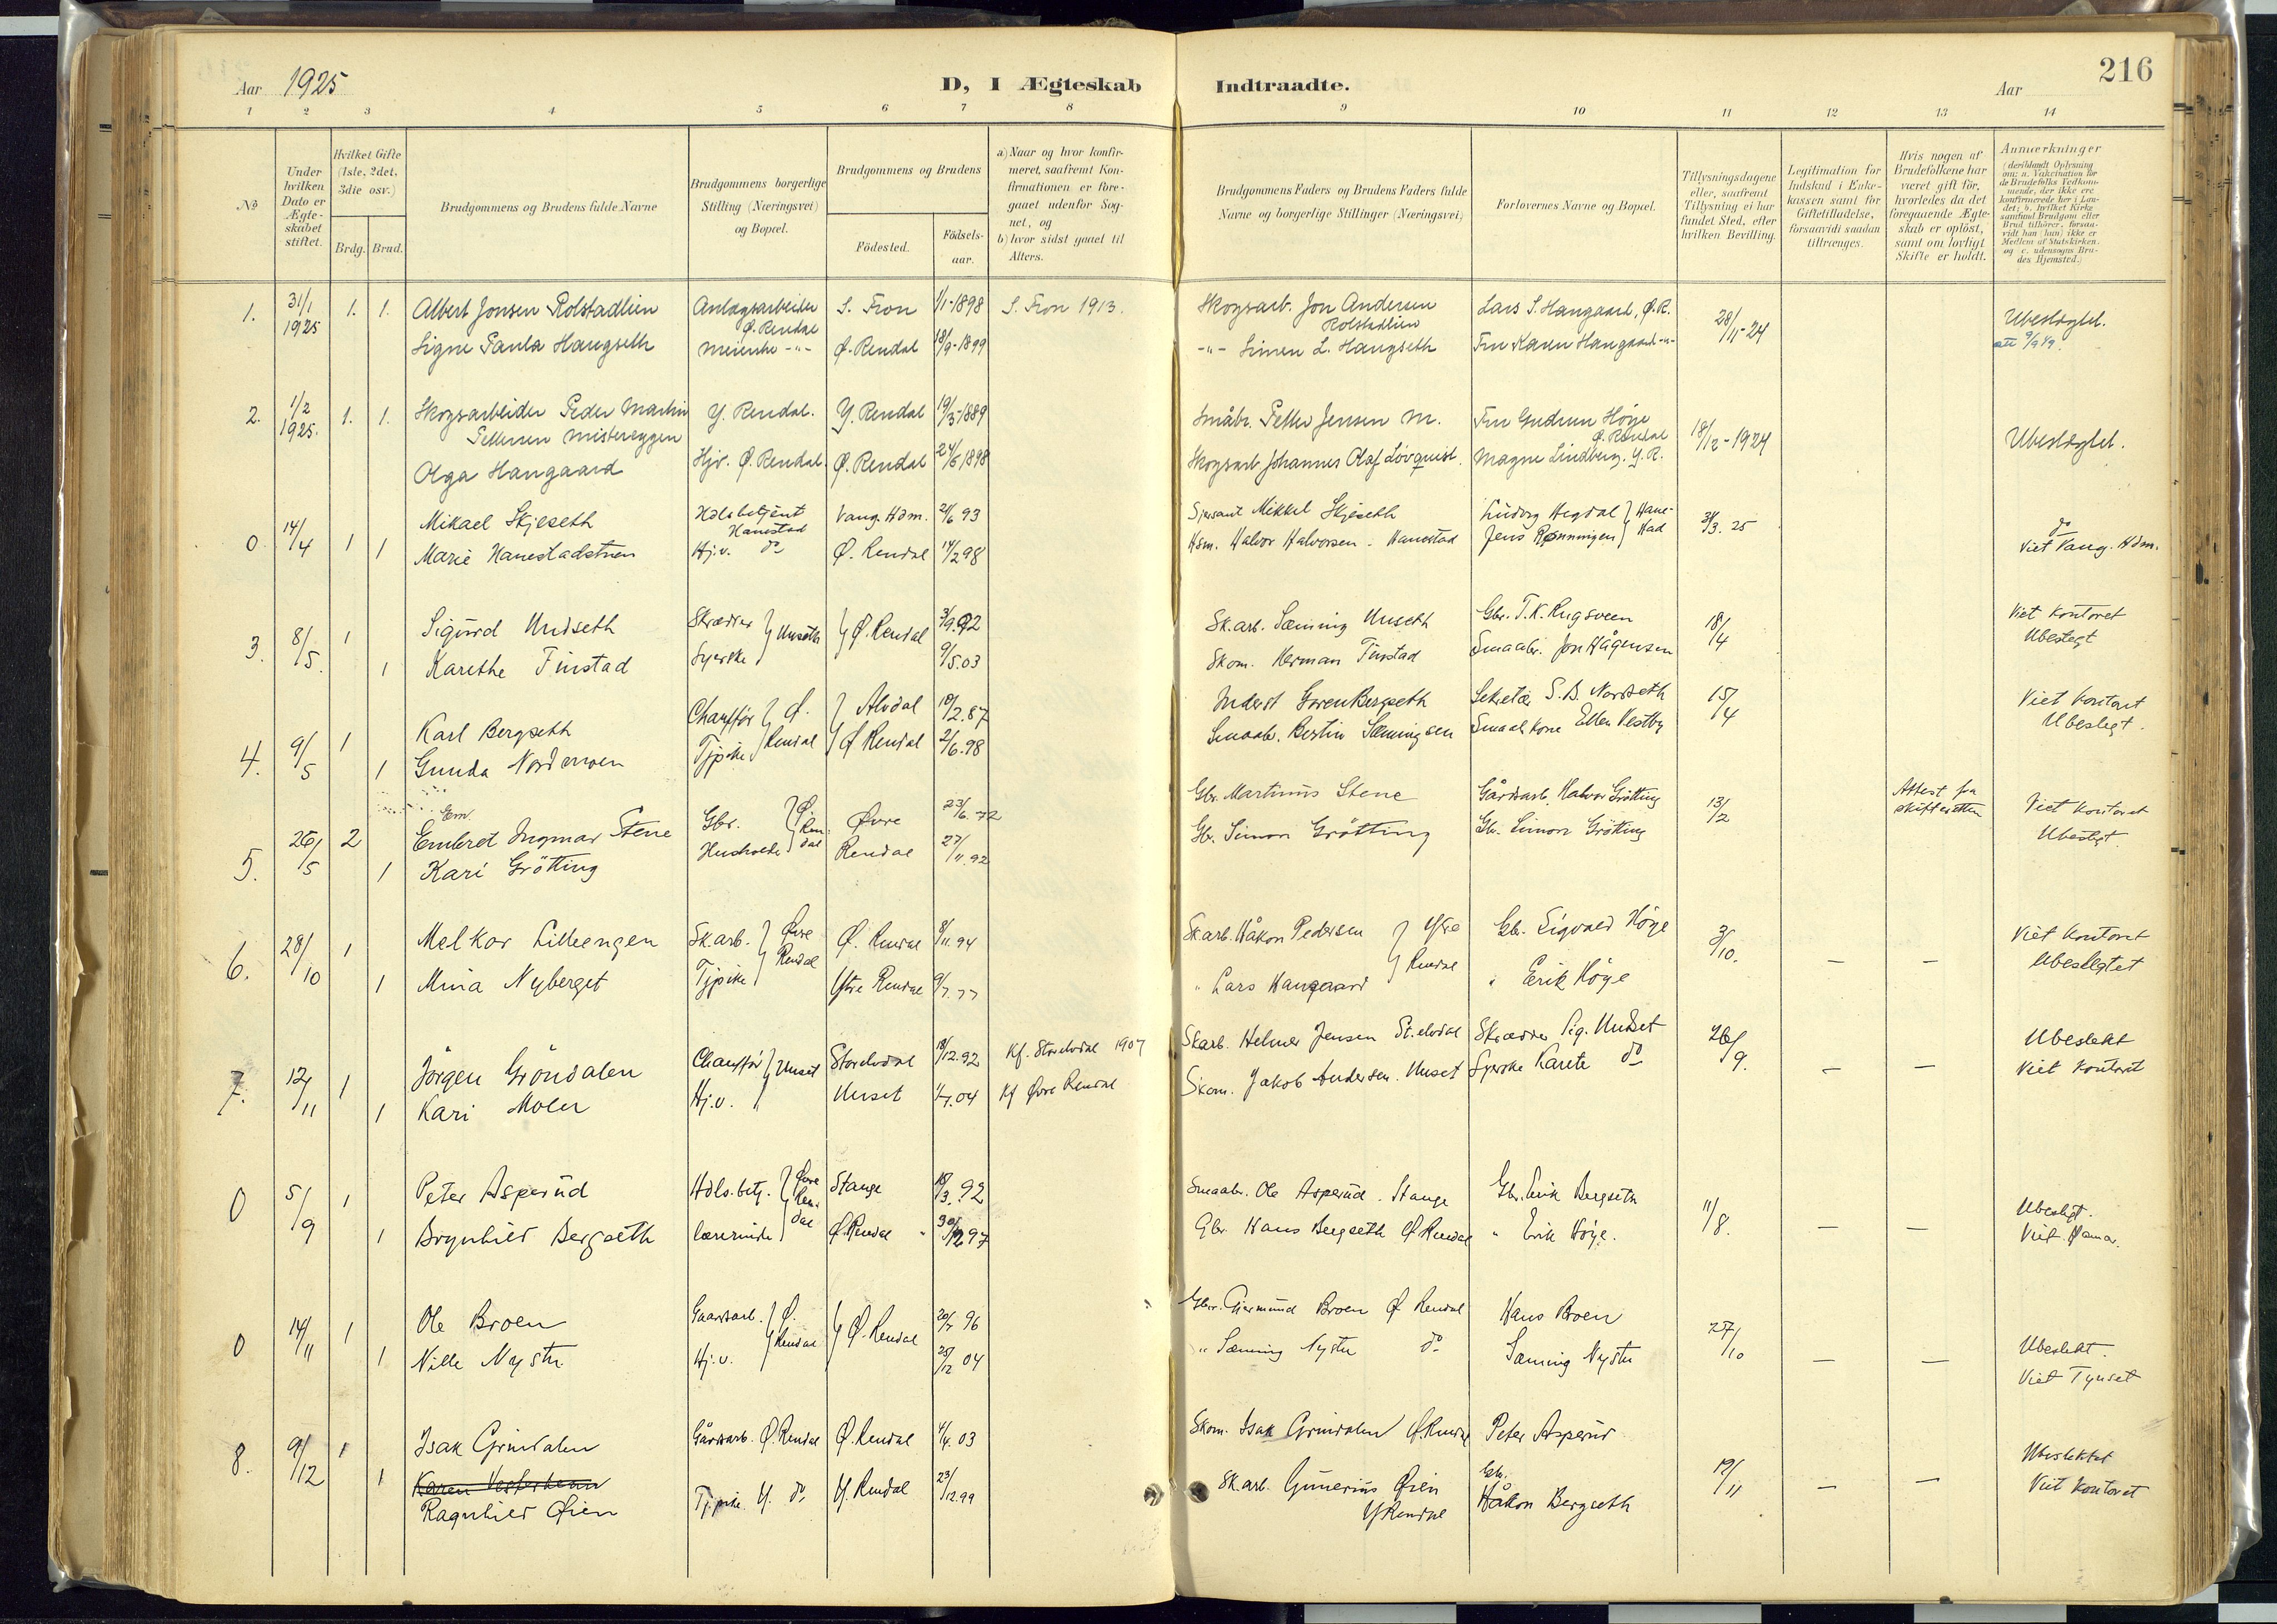 Aar 1925
D, I Ægteskab Indtraadte.
Aar
216
1 2 3 4 5 6 7 8 9 10 11 12 13 14
No
Under hvilken Dato er Ægteskabet stiftet.
Hvilket Gifte (1ste, 2det, 3die osv.)
Brdg. Brud.
Brudgommens og Brudens fulde Navne
Brudgommens borgerlige Stilling (Næringsvei) og Bopæl.
Brudgommens og Brudens
Födested.
Födsels-aar.
a) Naar og hvor konfirmeret, saafremt Konfirmationen er foregaaet udenfor Sognet, og
b) hvor sidst gaaet til Alters.
Brudgommens Faders og Brudens Faders fulde Navne og borgerlige Stillinger (Næringsvei)
Forlovernes Navne og Bopæl.
Tillysningsdagene eller, saafremt Tillysning ei har fundet Sted, efter hvilken Bevilling.
Legitimation for Indskud i Enkekassen samt for Giftetilladelse, forsaavidt saadan tiltrænges.
Hvis nogen af Brudefolkene har været gift før, hvorledes da det foregaaende Ægteskab er oplöst, samt om lovligt Skifte er holdt.
Anmerkninger
1. 31/1 1925 1. 1. Albert Jonsen Rolstadlien Anlægsarbeider Ø. Rendal S. Fron 1/1-1898 S. Fron 1913. Skogsarb. Jon Andersen Rolstadlien Lars S. Hangaard, Ø.R. 28/11-24 Ubeslegtet.
Signe Paula Haugseth -"- Ø. Rendal 18/9-1899 -"- Simen L. Haugseth Fru Karen Hangaard -"-
2. 1/2 1925. 1. 1. Skogsarbeider Peder Martin Pettersen Mistereggen Y. Rendal. Y. Rendal 19/3-1889 Småbr. Petter Jensen M. Fru Gudrun Höye Ø. Rendal 18/12-1924 Ubeslegtet.
Olga Hangaard Hjv. Ø. Rendal. Ø. Rendal 24/6 1898 Skogsarb. Johannes Olaf Lövquist. Magne Lindberg. Y.R.
0 14/4 1 1 Mikael Skjeseth Hdlsbetjent Hanestad Vang. Hdm. 21/6 93 Sjersant Mikkel Skjeseth Ludvig Hegdal } Hane- 31/3. 25 do
Marie Hanestadstuen Hj.v. do Ø. Rendal 14/2 98 Hdm. Halvor Halvorsen. Hanestad Jens Rønningen } stad Viet Vang. Hdm.
3. 8/5. 1 Sigurd Undseth Skrædder } Unseth } Ø. Rendal 3/9.92 Sk.arb. Sæming Unseth Gbr. T.K. Rugsveen 18/4 Viet kontoret
1 Karethe Finstad Syerske 9/5.03 Skom. Herman Finstad Smaabr. Jon Hågensen Ubeslegt
4. 9/5 1 Karl Bergseth Chauffør } Ø. } Alvdal 10/2.87 Inderst Goren Bergseth Sekretær S.B. Nordseth 15/4 Viet kontoret
1 Gunda Nordmoen Tjpike } Rendal } Ø Rendal 2/6.98 Smaabr. Bertin Sæmingsen Ellen Vestby Ubeslegt.
5. 26/5 2 Em. Embret Ingmar Stene Gbr. } Ø. Ren- Øvre 23/6.72 Gbr. Martinus Stene Gårdsarb. Halvor Grötting 13/2 Attest fra skifteretten Viet kontoret
1 Kari Grötting Husholder } dal Rendal 27/11.92 Gbr. Simon Grötting Gbr. Simon Grötting Ubeslegt.
6. 28/10 1 Melkor Lilleengen Sk.arb. } Øvre Ø. Rendal 8/11.94 Skarb. Håkon Pedersen } Ytre Gb. Sigvald Höye 3/10. — — Viet kontoret
1 Mina Nyberget Tjpike } Rendal Ytre Rendal 9/7.77 " Lars Hangaard } Rendal " Erik Höye Ubeslegtet
7. 12/11 1 Jörgen Gröndalen Chauffør } Unset Storelvdal 18/12.92 Kf. Storelvdal 1907 Skarb. Helmer Jensen St.elvdal Skrædder Sig. Undset 26/9. — — Ubeslekt
1 Kari Moen Hj.v. Unset 1/7.04 Kf Øvre Rendal Skom. Jakob Andersen. Unset Syerske Karete do Viet kontoret
0 5/9 1 Peter Asperud Hdls.betj. } Øvre Ren- Stange 18/3.92 Smaabr. Ole Asperud. Stange Gbr. Erik Bergseth 11/8. — — Ubeslegt.
1 Brynhild Bergseth lærerinde } dal Ø. Rendal 30/12 97 Gbr. Hans Bergseth Ø Rendal " Erik Höye. Viet Hamar.
0 14/11 1 Ole Broen Gaardsarb. } Ø. } Ø. Rendal 20/7 96 Gbr. Gjermund Broen Ø Rendal Hans Broen 27/10 — — Ubeslekt.
1 Nille Nystu Hj.v. } Rendal 25/12 04 " Sæming Nystu do Sæming Nystu Viet Tynset
8. 9/12 1 Isak Grindalen Gårdsarb. Ø. Rendal Ø. Rendal 4/4. 03 Skom. Isak Grindalen Ø. Rendal Peter Asperud 19/11 — — Ubeslektet
1 Ragnhild Øien Tjpike Y. do Y. Rendal 23/12.99 Sk.arb. Gunerius Øien Y Rendal Gbr. Håkon Bergseth Viet kontoret